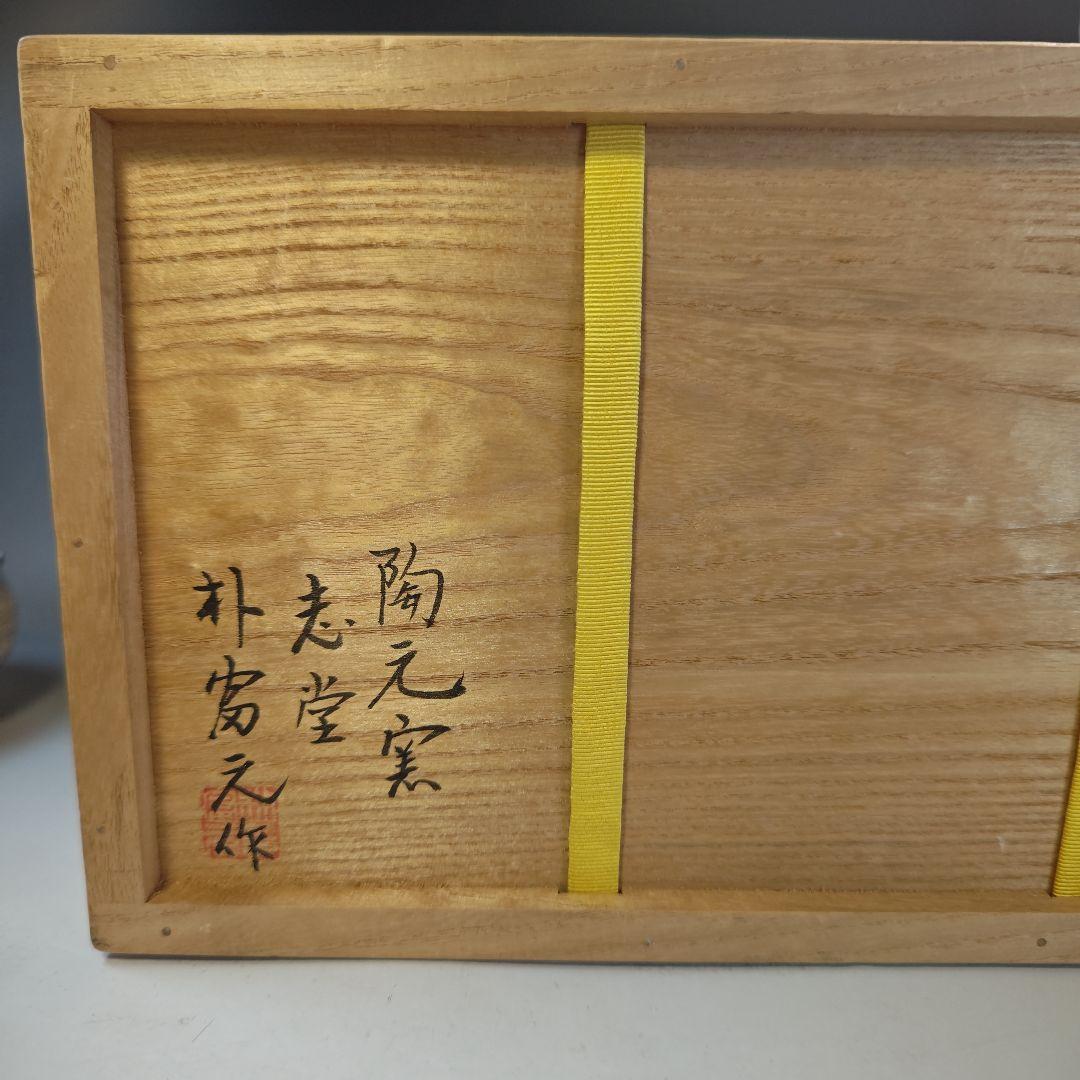 陶元窯
志堂
朴富元作